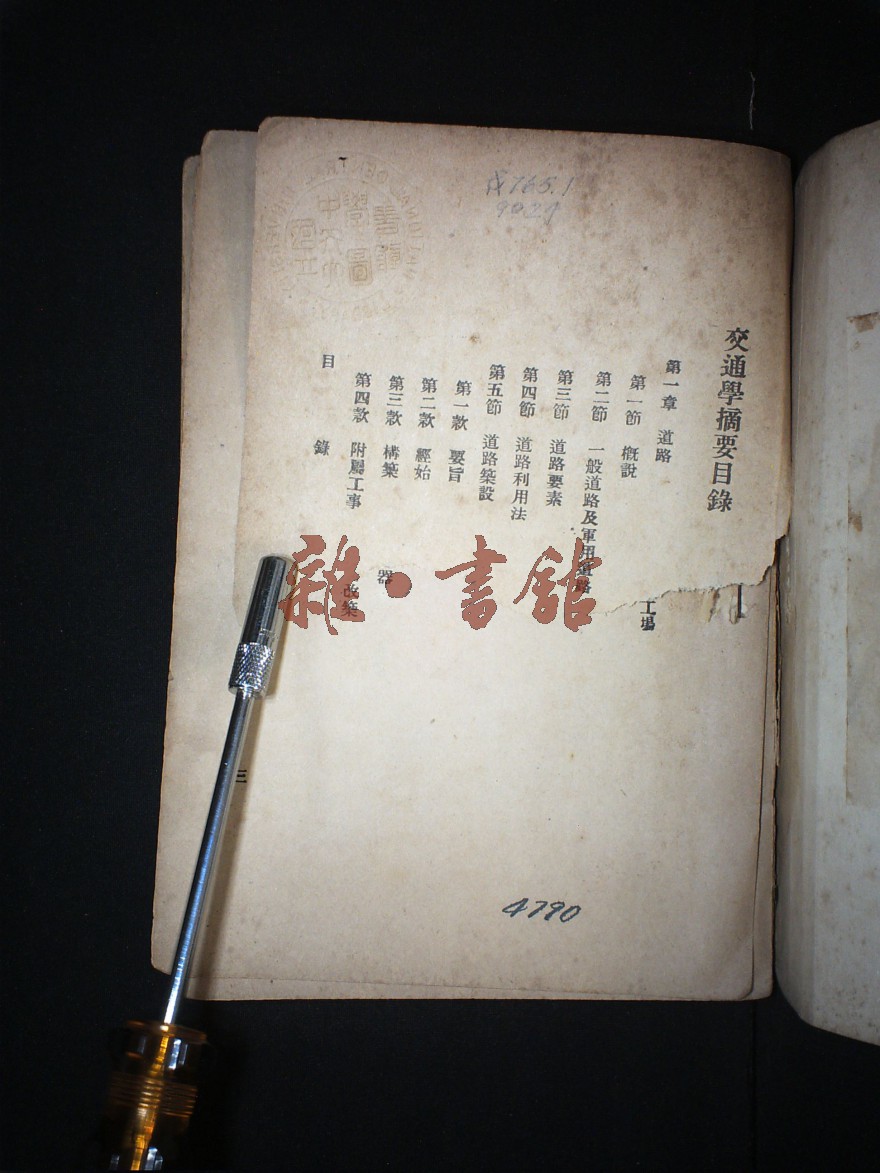 交通學摘要目錄
第一章 道路
第一節 槪說
第二節 一般道路及軍用道路
第三節 道路要素
第四節 道路利用法
第五節 道路築設
第一款 要旨
第二款 經始
第三款 構築
第四款 附屬工事
目錄
工場
器
改築
三
765.1
4790
雜·書館